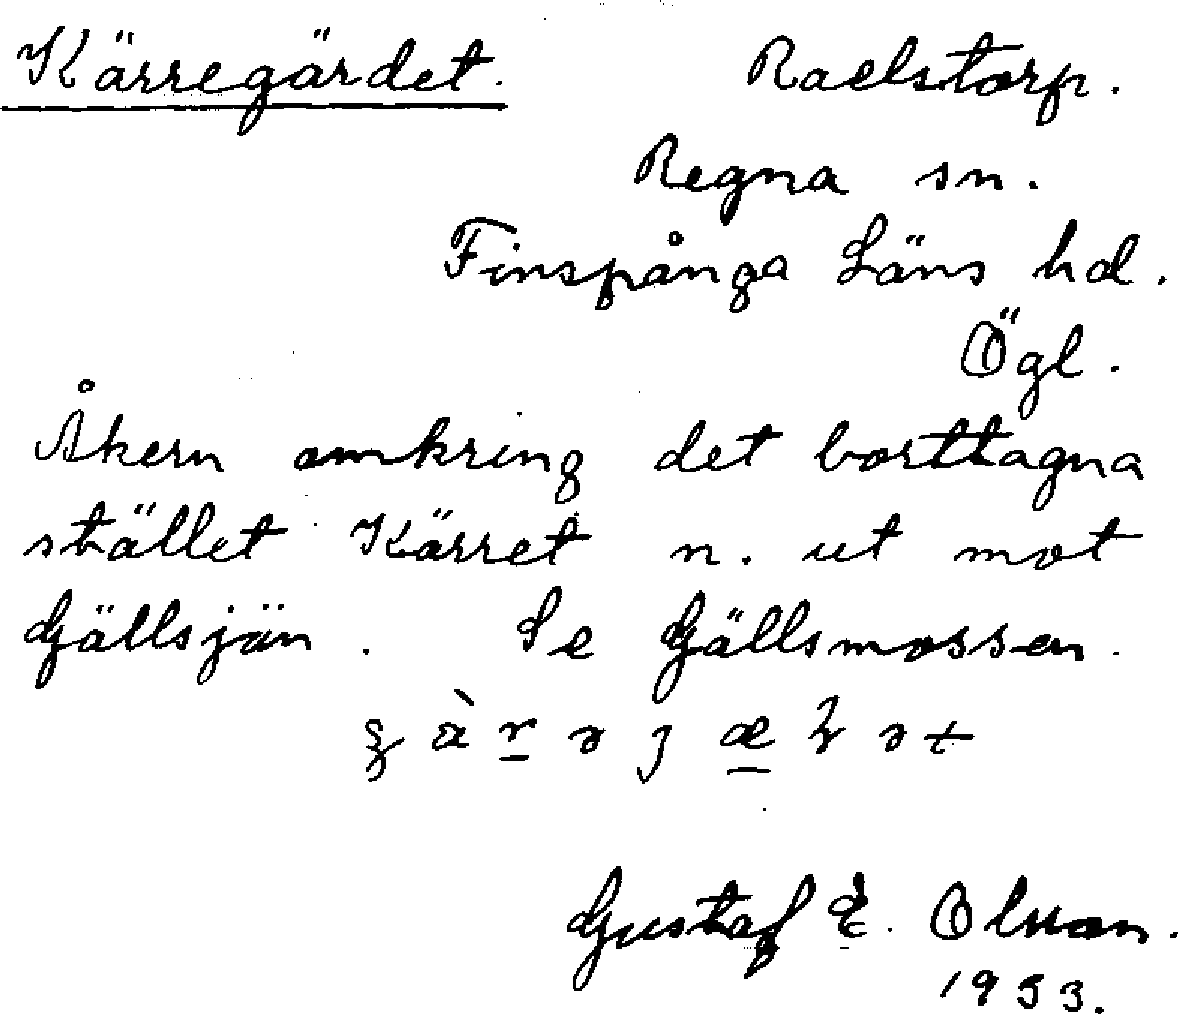 Kärregärdet. Raelstorp.
Regna sn.
Finspånga Läns hd.
Ögl.
Åkern omkring det borttagna
stället Kärret n. ut mot
Gällsjön. Se Gällsmossen.
Gustaf E. Olson.
1933.